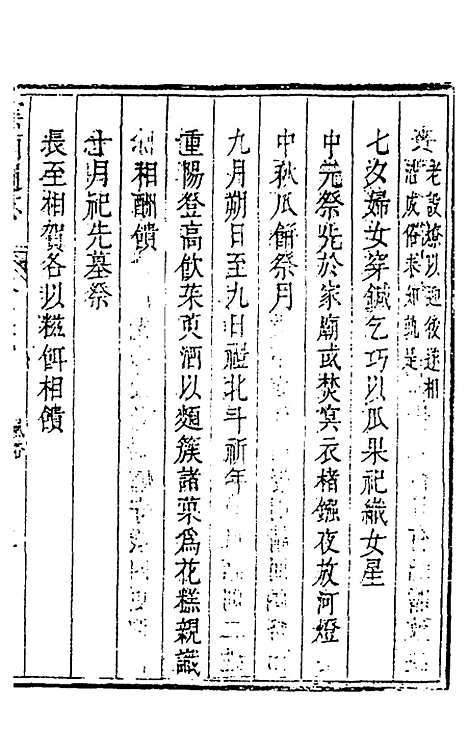 老設燎以迎後遂相
沿成俗未知孰是
七夕婦女穿鍼乞巧以瓜果祀織女星
中元祭先於家廟或焚冥衣楮鏹夜放河燈
中秋瓜餅祭月
九月朔日至九日禮北斗祈年
重陽登高飲茱萸酒以麵簇諸菓為花糕親識
相酬饋
十月祀先墓祭
長至相賀各以糍餌相饋